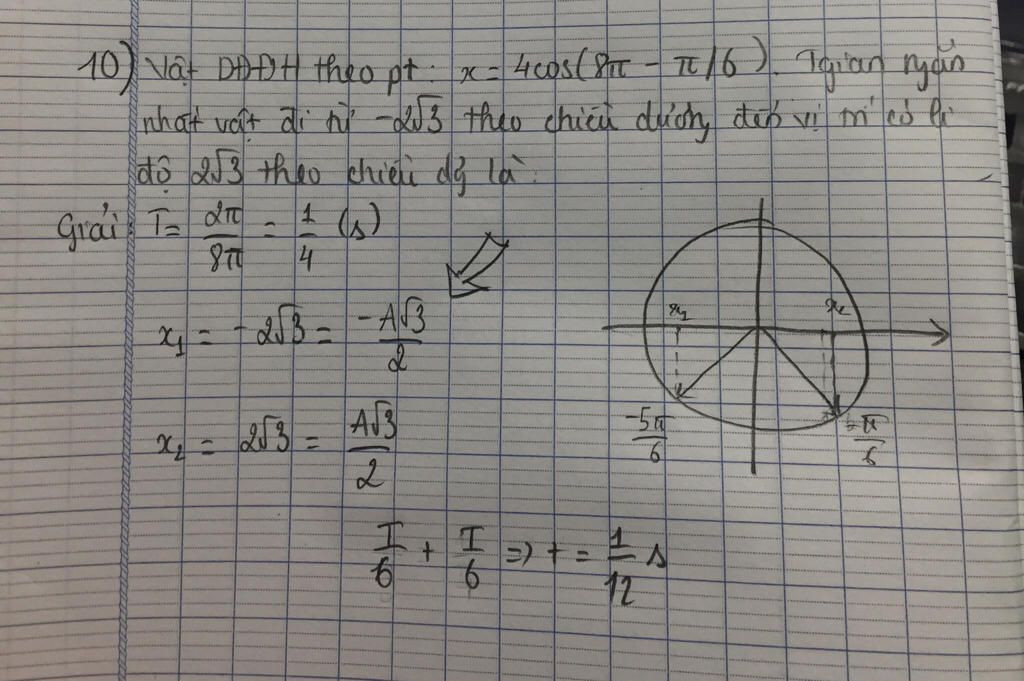 10) Vật DĐĐH theo pt: x = 4cos(8π - π/6). Tgian ngắn
nhất vật đi từ -2√3 theo chiều dương đến vị trí có li
độ 2√3 theo chiều dg là:
Giải: T = 2π/8π = 1/4 (s)
x₁ = -2√3 = -A√3/2
x₂ = 2√3 = A√3/2
x₁ x₂
-5π/6 -π/6
T/6 + T/6 => t = 1/12 s